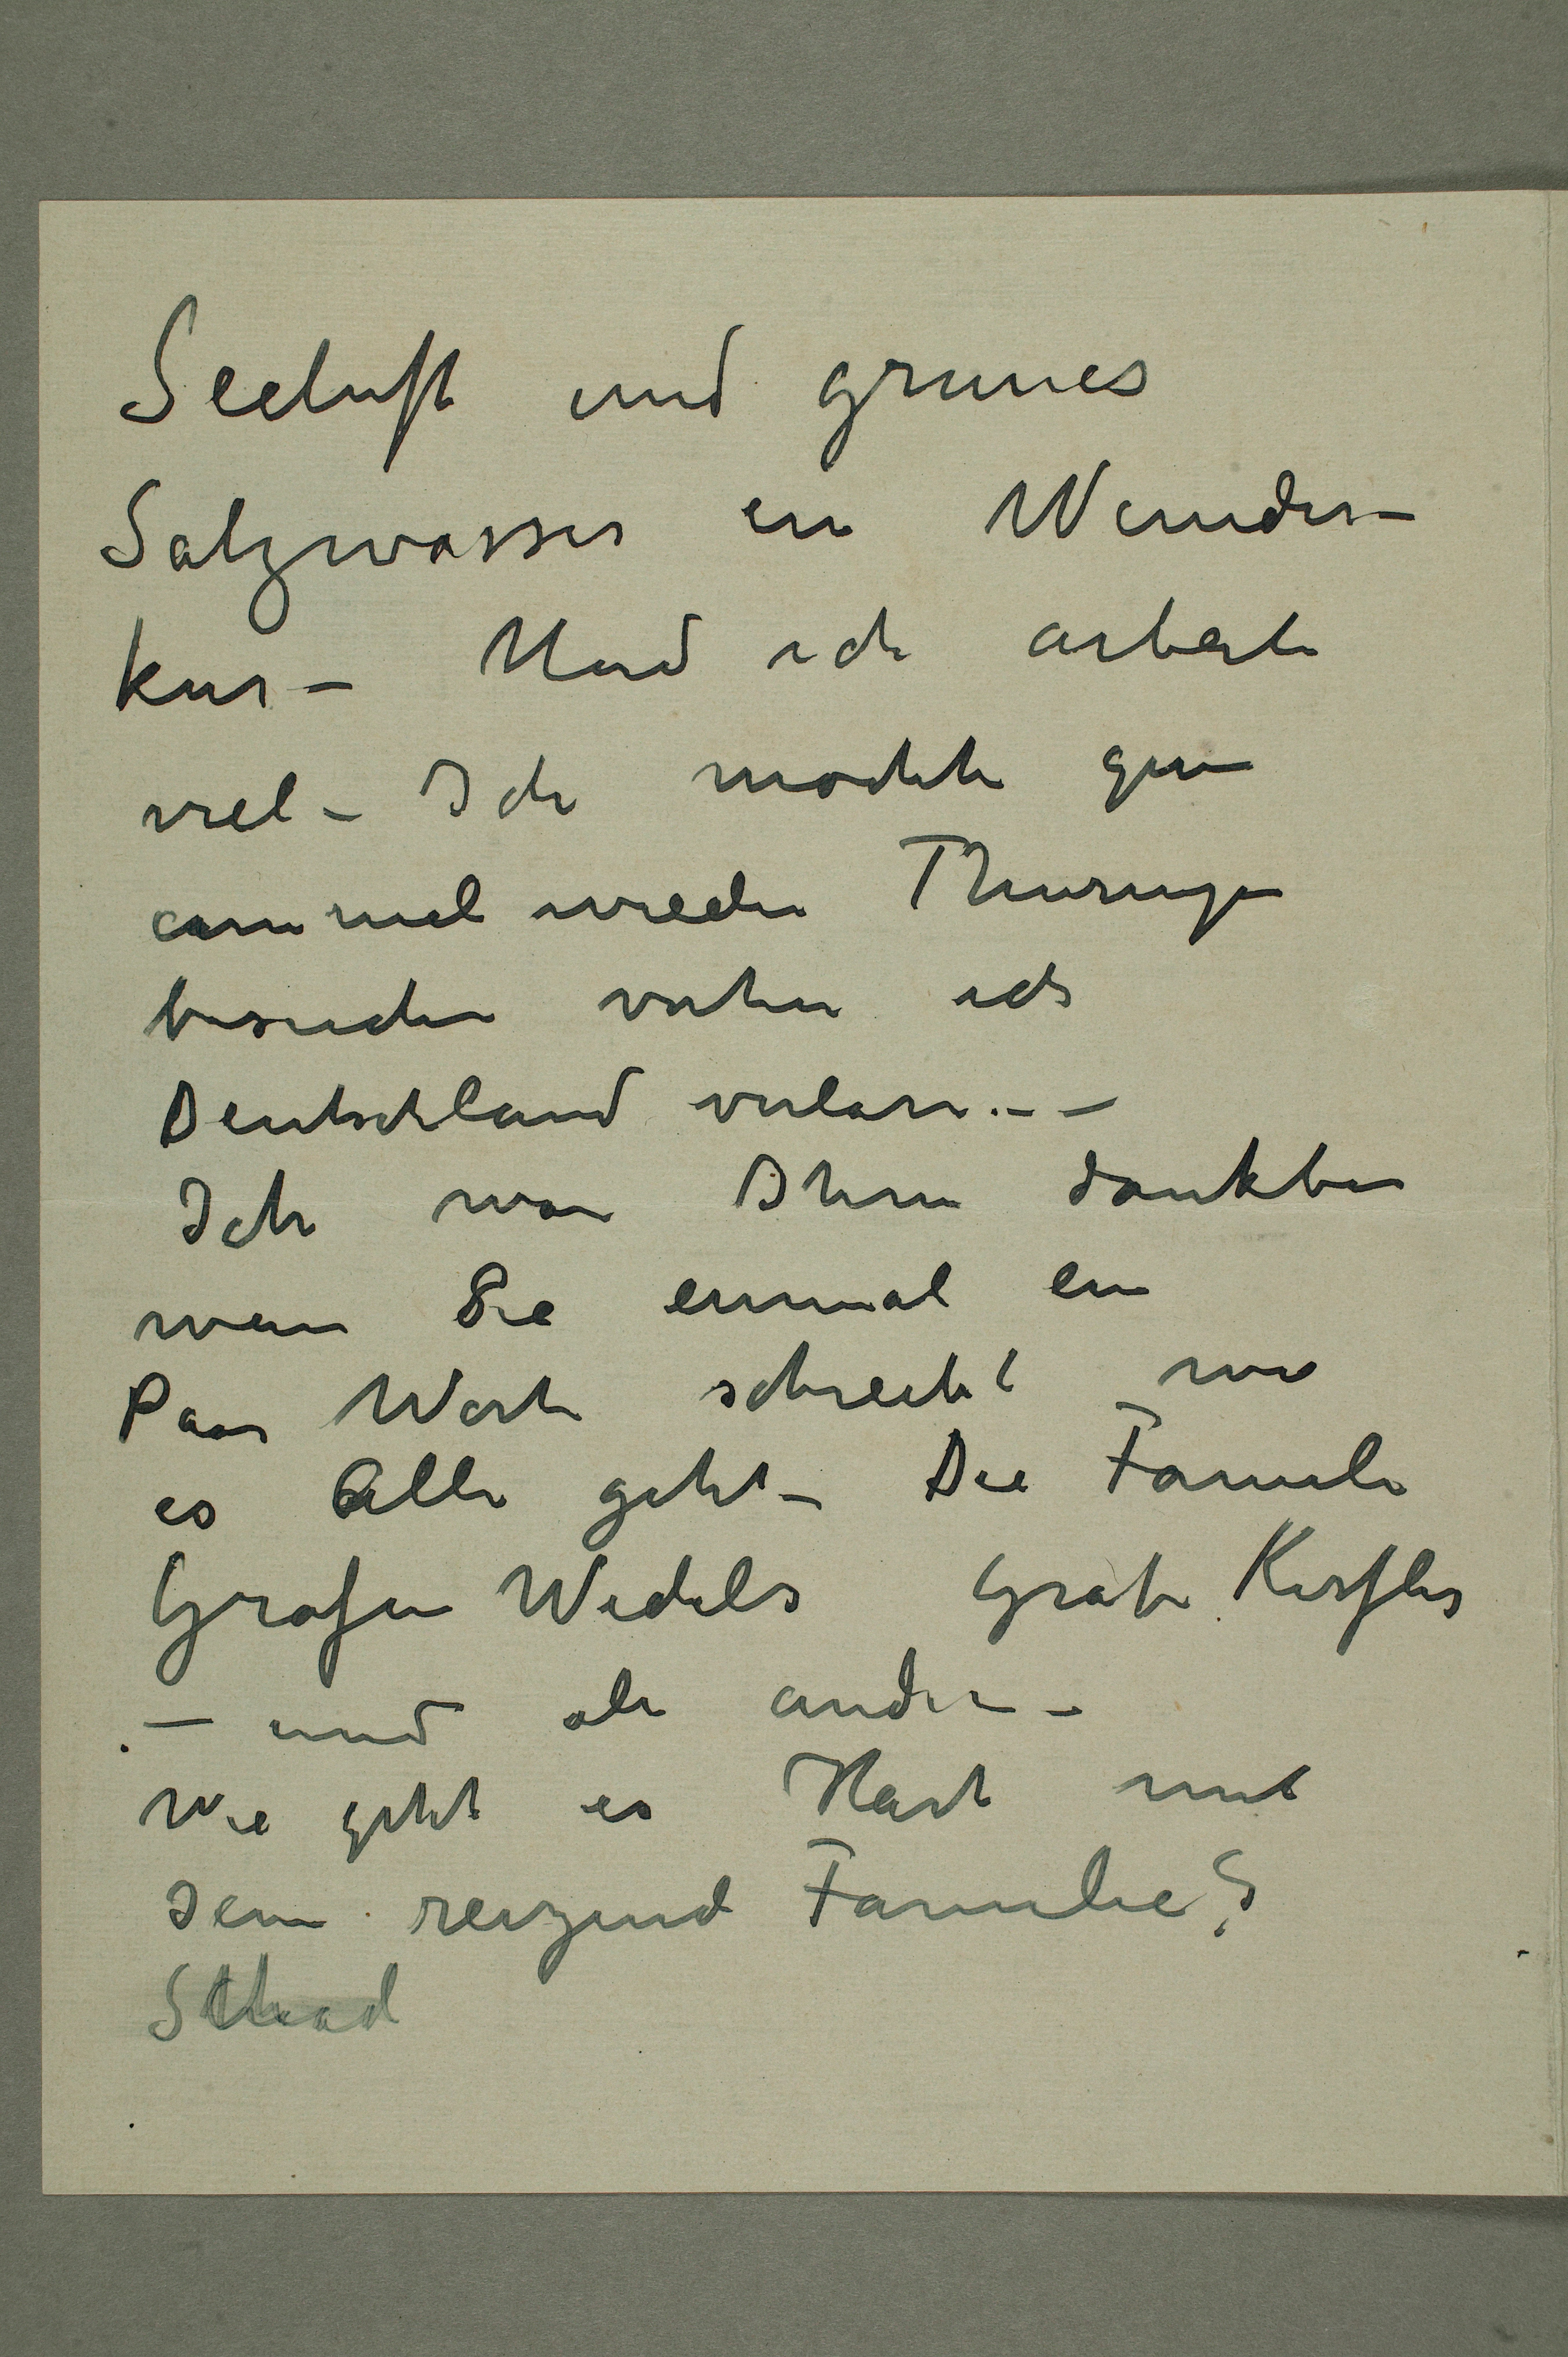 Seeluft und grunes
Salzwasser ein Wunder-
kur – Und ich arbeite
viel – Ich mochte gern
einmal wieder Thuringen
besuchen vorher ich
Deutschland verlasse. – –
Ich war Ihnen dankbar
wenn Sie einmal ein
Paar Worte schreibt wie
es Alle geht – Die Familie
Grafen Wedels Grafe Kessler
– und alle andere –
Wie geht es Hart mit
sein reizend Familie?